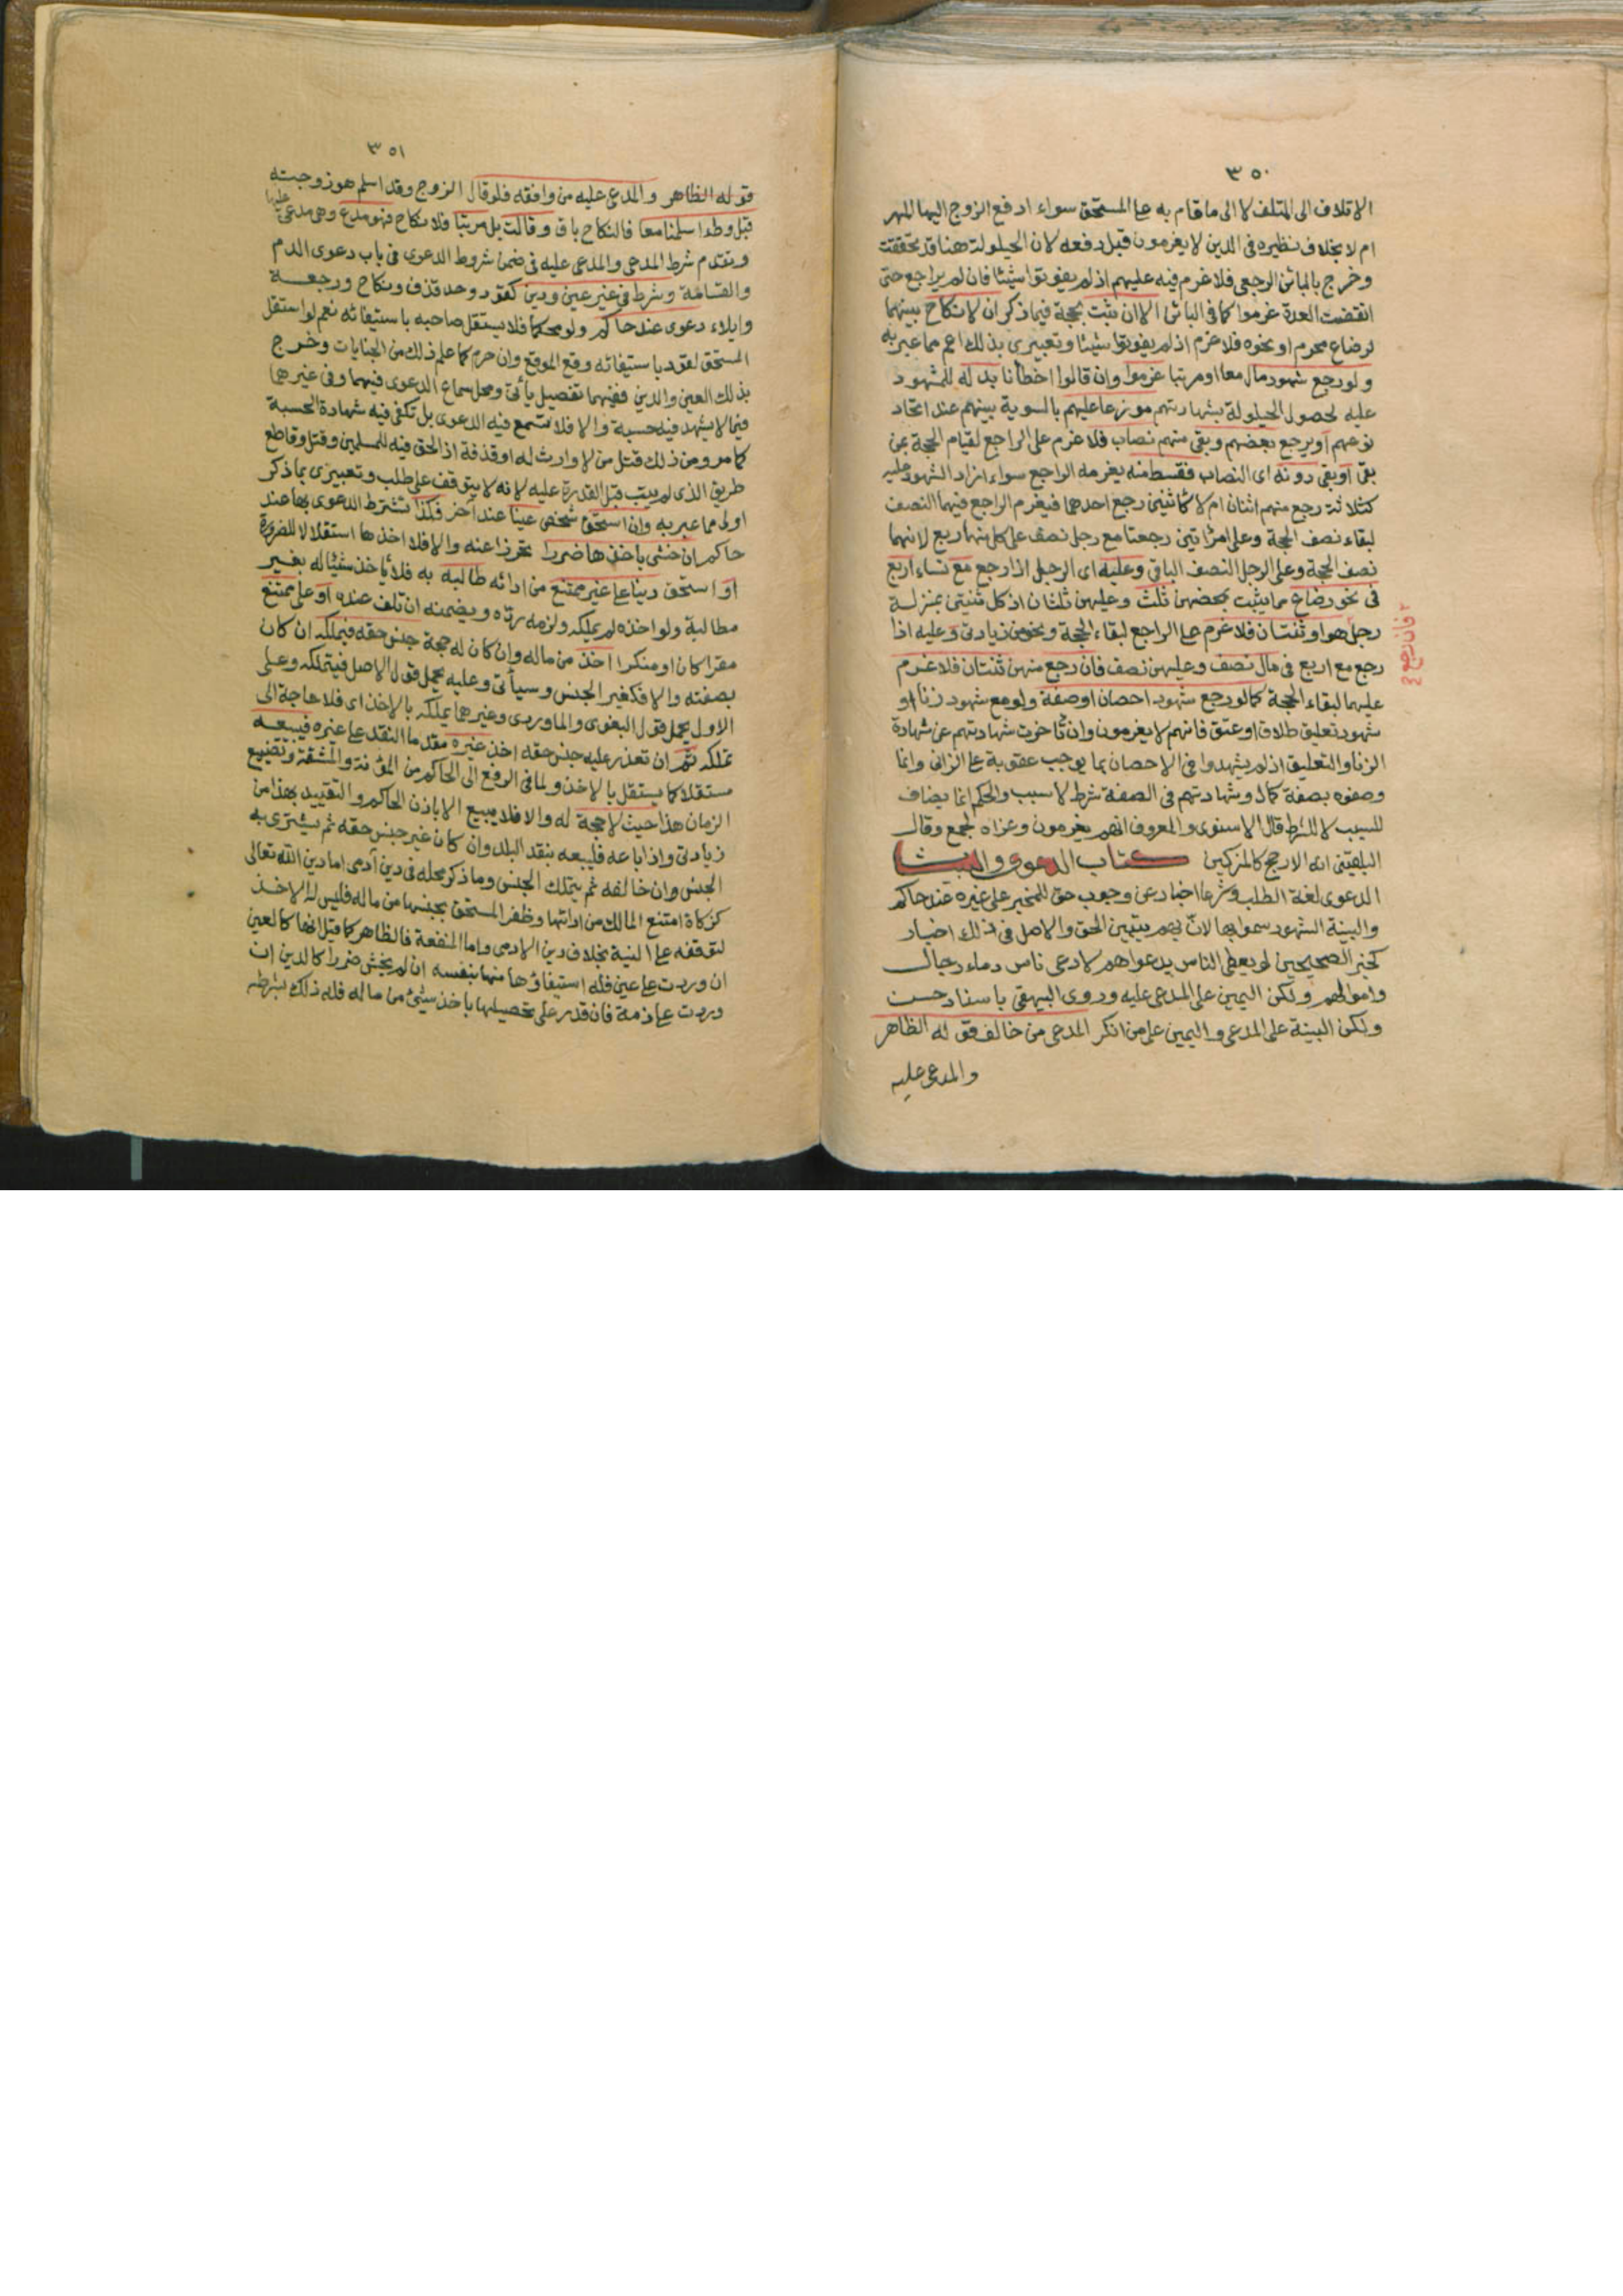 ٣٥٠
الاتلاف الى المتلف لا الى ما قام به عل المستحق سواء ادفع الزوج اليها المهر
ام لا بخلاف نظيره في الدين لا يغرمون قبل دفعه لان الحيلولة هنا قد تحققت
وخرج بالبائن الرجعي فلا غرم فيه عليهم اذ لم يفوتوا شيئا فان لم يراجع حتى
انقضت العدة غرموا كما في البائن الا ان ثبت بحجة فيما ذكر ان لا نكاح بينهما
لرضاع محرم او نحوه فلا غرم اذ لم يفوتوا شيئا وتعبيري بذلك اعم مما عبر به
ولو رجع شهود مال معا او مرتبا غرموا وان قالوا اخطأنا بدله للمشهود
عليه لحصول الحيلولة بشهادتهم موزعا عليهم بالسوية بينهم عند اتحاد
نوعهم او يرجع بعضهم وبقي منهم نصاب فلا غرم على الراجع لقيام الحجة بمن
بقي او بقي دونه اى النصاب فقسط منه يغرمه الراجع سواء ازاد الشهود عليه
كثلاثة رجع منهم اثنان ام لا كاثنين رجع احدهما فيغرم الراجع فيهما النصف
لبقاء نصف الحجة وعلى امرأتين رجعتا مع رجل نصف على كل منهما ربع لانهما
نصف الحجة وعلى الرجل النصف الباقي وعليه اى الرجل اذا رجع مع نساء اربع
في نحو رضاع مما يثبت بمحضهن ثلث وعليهن ثلثان اذ كل ثنيتى بمنزلة
رجل هو او ثنتان فلا غرم عل الراجع لبقاء الحجة ونحو من زيادتي وعليه اذا
رجع مع اربع في مال نصف وعليهن نصف فان رجع منهن ثنتان فلا غرم
عليهما لبقاء الحجة كما لو رجع شهود احصان او صفة ولو مع شهود زنا او
شهود تعليق طلاق او عتق فانهم لا يغرمون وان تأخرت شهادتهم عن شهادة
الزنا والتعليق اذ لم يشهدوا في الاحصان بما يوجب عقوبة عل الزاني وانما
وصفوه بصفة كمال وشهادتهم في الصفة شرط لا سبب والحكم انما يضاف
للسبب لا للشرط قال الاسنوى والمعروف انهم يغرمون وعزاه لجمع وقال
البلقيني انه الارجح كالمزكين كتاب الدعوى والبينات
الدعوى لغة الطلب وشرعا اخبار عن وجوب حق للمخبر على غيره عند حاكم
والبينة الشهود سموا بها لان بهم يتبين الحق والاصل في ذلك اخبار
كخبر الصحيحين لو يعطى الناس بدعواهم لادعى ناس دماء رجال
واموالهم ولكن اليمين على المدعى عليه وروى البيهقي باسناد حسن
ولكن البينة على المدعي واليمين على من انكر المدعي من خالف قوله الظاهر
والمدعى عليه
فان رجع
٣٥١
قوله الظاهر والمدعى عليه من وافقه فلو قال الزوج وقد اسلم هو وزوجته
قبل وطء اسلمنا معا فالنكاح باق وقالت بل مرتبا فلا نكاح فهو مدع وهي مدعى عليها
وتقدم شرط المدعي والمدعى عليه في ضمن شروط الدعوى في باب دعوى الدم
والقسامة وشرط في غير عين ودين كقود وحد قذف ونكاح ورجعة
وايلاء دعوى عند حاكم ولو محكما فلا يستقل صاحبه باستيفائه نعم لو استقل
المستحق لقود باستيفائه وقع الموقع وان حرم كما علم ذلك من الجنايات وخرج
بذلك العين والدين ففيهما تفصيل يأتي ومحل سماع الدعوى فيهما وفي غيرهما
فيما لا يشهد فيه حسبة والا فلا تسمع فيه الدعوى بل تكفي فيه شهادة الحسبة
كما مر ومن ذلك قتل من لا وارث له او قذفة اذ الحق فيه للمسلمين وقتل وقاطع
طريق الذى لم يتب قبل القدرة عليه لانه لا يتوقف على طلب وتعبيرى بما ذكر
اولى مما عبر به وان استحق شخص عينا عند اخر فكذا تشترط الدعوى بها عند
حاكم ان خشي باخذها ضررا تحرزا عنه والا فلا اخذها استقلالا للضرورة
او استحق دينا عل غير ممتنع من ادائه طالبه به فلا ياخذ شيئا له بغير
مطالبة ولو اخذه لم يملكه ولزمه رده ويضمنه ان تلف عنده او على ممتنع
مقرا كان او منكرا اخذ من ماله وان كان له حجة جنس حقه فيملكه ان كان
بصفته والا فكغير الجنس وسيأتى وعليه يحمل قول الاصل فيتملكه وعلى
الاول يحمل قول البغوى والماوردى وغيرهما يملكه بالاخذ اى فلا حاجة الى
تملكه ثم ان تعذر عليه جنس حقه اخذ غيره مقدما النقد عل غيره فيبيعه
مستقلا كما يستقل بالاخذ ولما في الرفع الى الحاكم من المؤنة والمشقة وتضييع
الزمان هذا حيث لا حجة له والا فلا يبيع الا باذن الحاكم والتقييد بهذا من
زيادتى واذا باعه فليبعه بنقد البلد وان كان غير جنس حقه ثم يشترى به
الجنس وان خالفه ثم يتملك الجنس وما ذكر محله في دين آدمى اما دين الله تعالى
كزكاة امتنع المالك من ادائها وظفر المستحق بجنسها من ماله فليس له الاخذ
لتوقفه عل النية بخلاف دين الادمى واما المنفعة فالظاهر كما قيل انها كالعين
ان وردت عل عين فله استيفاؤها منها بنفسه ان لم يخش ضررا كالدين ان
وردت عل ذمة فان قدر على تحصيلها باخذ شئ من ماله فله ذلك بشرطه